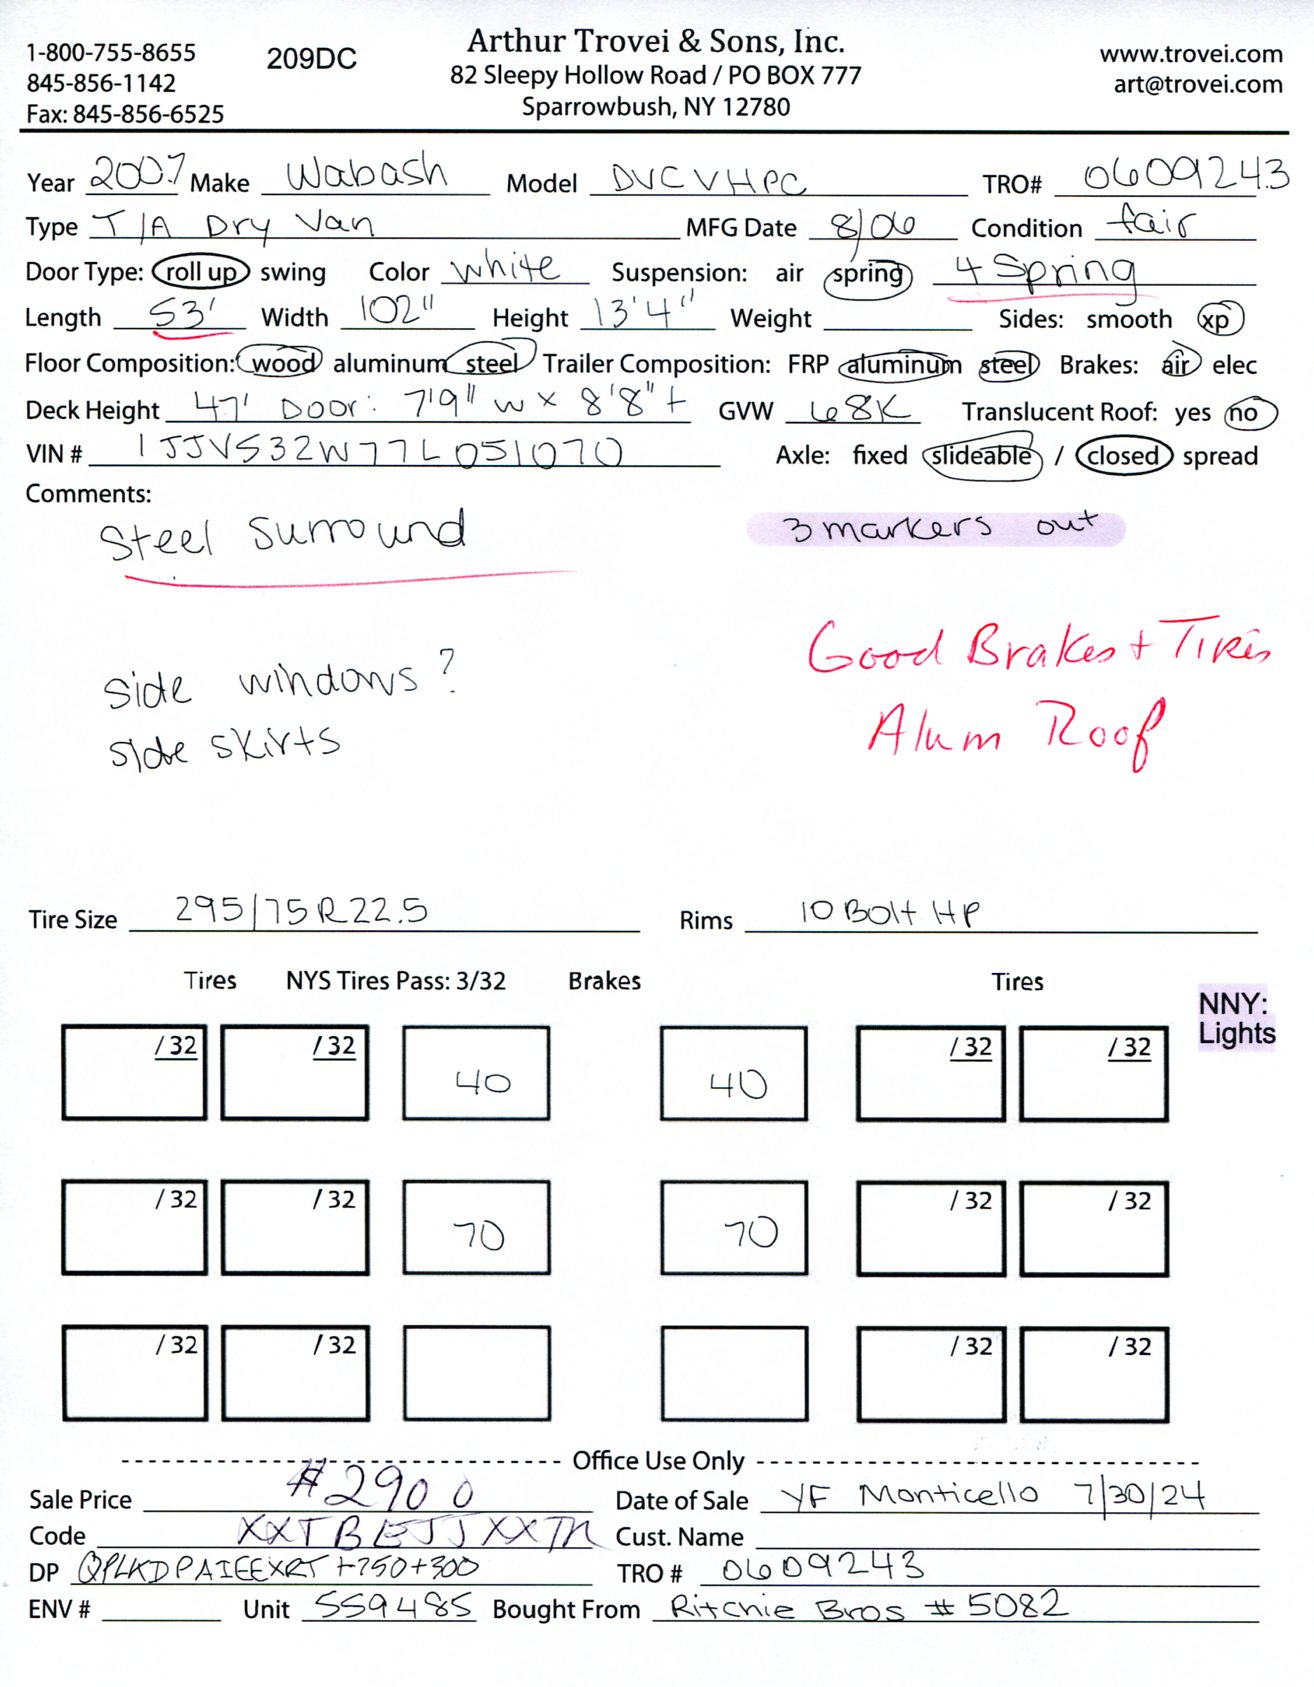 1-800-755-8655 209DC Arthur Trovei & Sons, Inc. www.trovei.com
845-856-1142 82 Sleepy Hollow Road / PO BOX 777 art@trovei.com
Fax: 845-856-6525 Sparrowbush, NY 12780
Year 2007 Make Wabash Model DVCVHPC TRO# 0609243
Type T/A Dry Van MFG Date 8/06 Condition fair
Door Type: roll up swing Color white Suspension: air spring 4 Spring
Length 53' Width 102" Height 13'4" Weight Sides: smooth xp
Floor Composition: wood aluminum steel Trailer Composition: FRP aluminum steel Brakes: air elec
Deck Height 47' Door: 7'9" w x 8'8" t GVW 68K Translucent Roof: yes no
VIN # 1JJV532W77L051070 Axle: fixed slideable / closed spread
Comments:
Steel Surround 3 markers out
Good Brakes + Tires
side windows?
Alum Roof
side skirts
Tire Size 295/75R22.5 Rims 10 Bolt HP
Tires NYS Tires Pass: 3/32 Brakes Tires
NNY:
Lights
/ 32 / 32 40 40 / 32 / 32
/ 32 / 32 70 70 / 32 / 32
/ 32 / 32 / 32 / 32
Office Use Only
Sale Price #2900 Date of Sale YF Monticello 7/30/24
Code XXTBEJJXXTM Cust. Name
DP QPLKDPAIEEXRT +750+300 TRO # 0609243
ENV # Unit 559485 Bought From Ritchie Bros # 5082